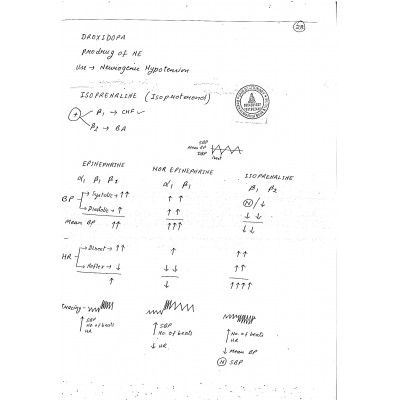 28
DROXIDOPA
Prodrug of NE
Use → Neurogenic Hypotension
ISOPRENALINE (Isoproterenol)
+ β1 → CHF ✓
β2 → BA
SBP
Mean BP
SBP
EPINEPHRINE NOR EPINEPHRINE ISOPRENALINE
α1 β1 β2 α1 β1 β1 β2
BP Systolic → ↑↑ ↑ ↑ N/↓
Diabolic → ↑ ↑ ↑ ↓ ↓
Mean BP ↑↑ ↑↑↑ ↓↓
HR Direct → ↑↑ ↑ ↑↑
Reflex → ↓ ↓↓ ↑↑
↑ ↓ ↑↑↑↑
Tracing →
↑ SBP
No. of beats
HR
↑ SBP
No. of beats
↓ HR
↑ No. of beats
HR
↓ Mean BP
N SBP